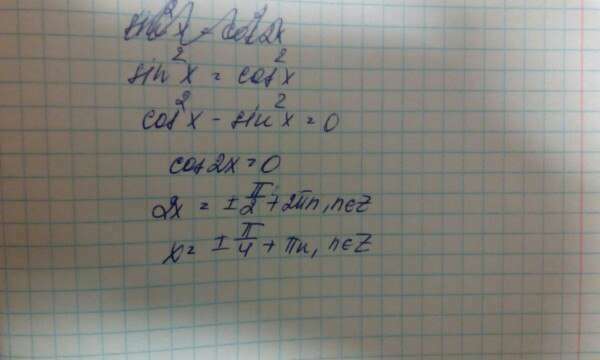 sin²x = cos²x
cos²x - sin²x = 0
cos2x = 0
2x = ± π/2 + 2πn, n∈Z
x = ± π/4 + πn, n∈Z